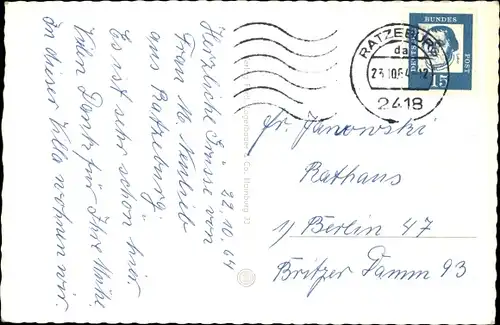 22.10.64
Herzliche Grüsse von
Frau M.
aus Ratzeburg.
Es ist sehr schön hier.
Vielen Dank für Ihre Mühe.
In dieser Villa wohnen wir.
Hamburg
RATZEBURG
da
23.10.64-12
2418
DEUTSCHE
BUNDES
POST
15
Fr. Janowski
Rathaus
1/ Berlin 47
Britzer Damm 93